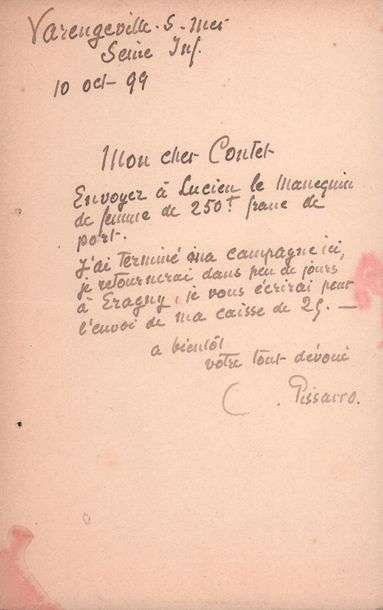 Varengeville-S-Mer
Seine Inf.
10 oct-99
Mon cher Contet
Envoyez à Lucien le Manequin
de femme de 250f franc de
port.
J'ai terminé ma campagne ici,
je retournerai dans peu de jours
à Eragny, je vous écrirai pour
l'envoi de ma caisse de 25. —
a bientôt
votre tout dévoué
C. Pissarro.